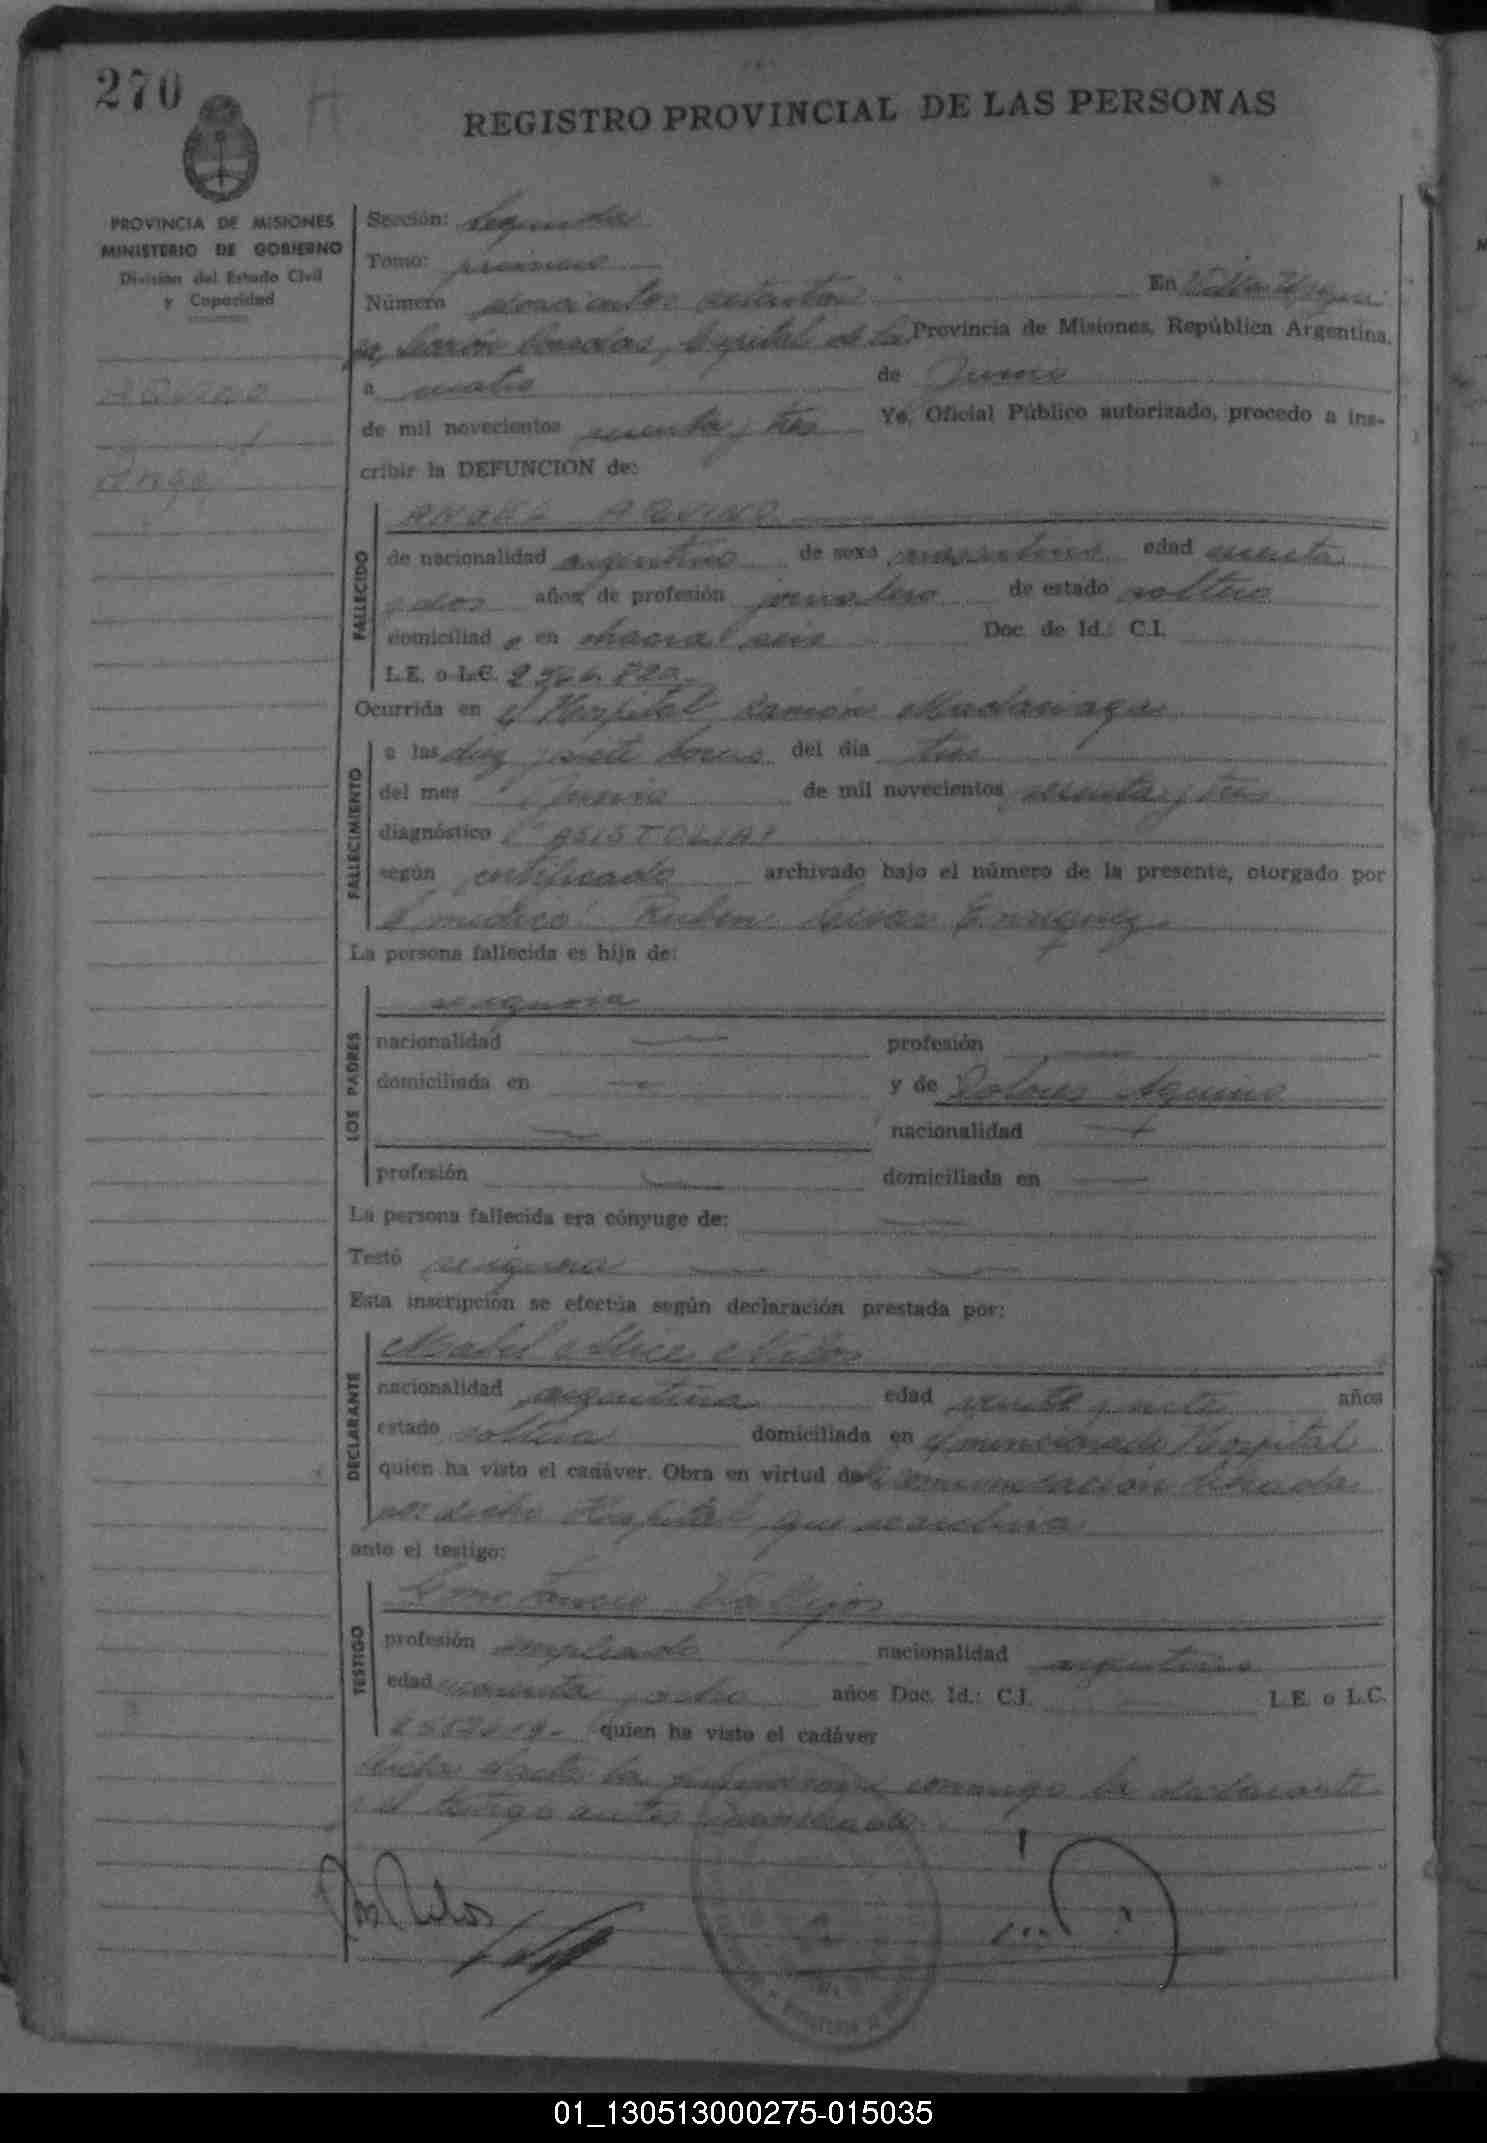 270
REGISTRO PROVINCIAL DE LAS PERSONAS
PROVINCIA DE MISIONES
MINISTERIO DE GOBIERNO
División del Estado Civil
y Capacidad
Sección: Segunda
Tomo: primero
Número doscientos setenta En Villa
Sección Posadas, Capital de la Provincia de Misiones, República Argentina,
a cuatro de Junio
de mil novecientos sesenta y tres Yo, Oficial Público autorizado, procedo a ins-
cribir la DEFUNCION de:
AQUINO
FALLECIDO
de nacionalidad argentino de sexo masculino edad
y dos años de profesión jornalero de estado soltero
domiciliad o en chacra seis Doc. de Id.: C.I.
L.E. o L.C.
Ocurrida en el Hospital Ramón Madariaga
FALLECIMIENTO
a las diez y siete horas del día tres
del mes Junio de mil novecientos sesenta y tres
diagnóstico "ASISTOLIA"
según certificado archivado bajo el número de la presente, otorgado por
el médico: Ruben Cesar Enriquez.
La persona fallecida es hija de:
LOS PADRES
se ignora
nacionalidad profesión
domiciliada en y de Dolores Aquino
nacionalidad
profesión domiciliada en
La persona fallecida era cónyuge de:
Testó se ignora
Esta inscripción se efectúa según declaración prestada por:
DECLARANTE
Mabel Alice
nacionalidad argentina edad veinte y siete años
estado soltera domiciliada en el mencionado Hospital
quien ha visto el cadáver. Obra en virtud de la comunicación librada
por dicho Hospital que se archiva
ante el testigo:
TESTIGO
Constancio Vallejos
profesión empleado nacionalidad argentino
edad y ocho años Doc. Id.: C.I. L.E. o L.C.
quien ha visto el cadáver
Leída el acta la firman conmigo la declarante
y el testigo antes
01_130513000275-015035